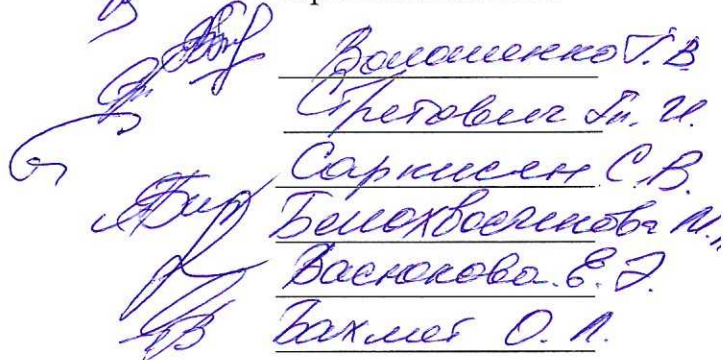 Волошенко Г. В
Стретович Т. И.
Саркисян С. В.
Белохвостикова М.
Васюкова Е. Э.
Бахмет О. Л.